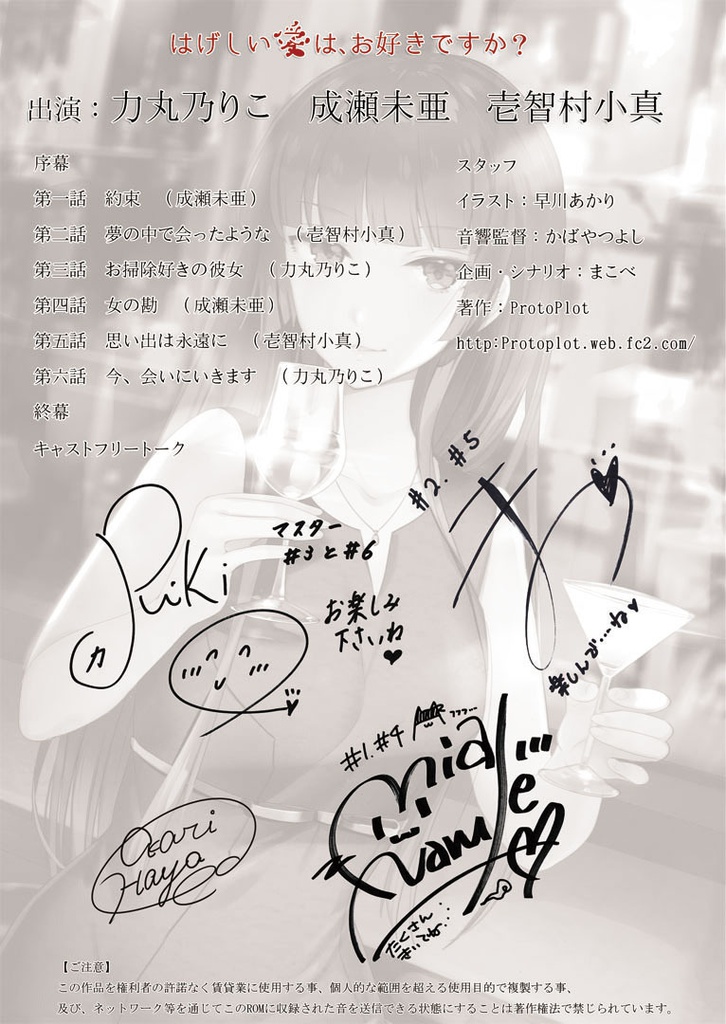 はげしい愛は、お好きですか？
出演：力丸乃りこ　成瀬未亜　壱智村小真
序幕
第一話　約束　（成瀬未亜）
第二話　夢の中で会ったような　（壱智村小真）
第三話　お掃除好きの彼女　（力丸乃りこ）
第四話　女の勘　（成瀬未亜）
第五話　思い出は永遠に　（壱智村小真）
第六話　今、会いにいきます　（力丸乃りこ）
終幕
キャストフリートーク
スタッフ
イラスト：早川あかり
音響監督：かばやつよし
企画・シナリオ：まこべ
著作：ProtoPlot
http:Protoplot.web.fc2.com/
#2. #5
マスター
#3と#6
お楽しみ
下さいね
楽しんで…ね
#1.#4
Mia
Naruse
たくさん
きいてね…
【ご注意】
この作品を権利者の許諾なく賃貸業に使用する事、個人的な範囲を超える使用目的で複製する事、
及び、ネットワーク等を通じてこのROMに収録された音を送信できる状態にすることは著作権法で禁じられています。